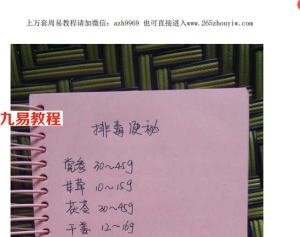 上万套周易教程请加微信：azh9969 也可直接进入www.265zhouyiw.com
九易教程
排毒反动
党参 30~45g
甘草 10~15g
茯苓 30~45g
干姜 12~16g